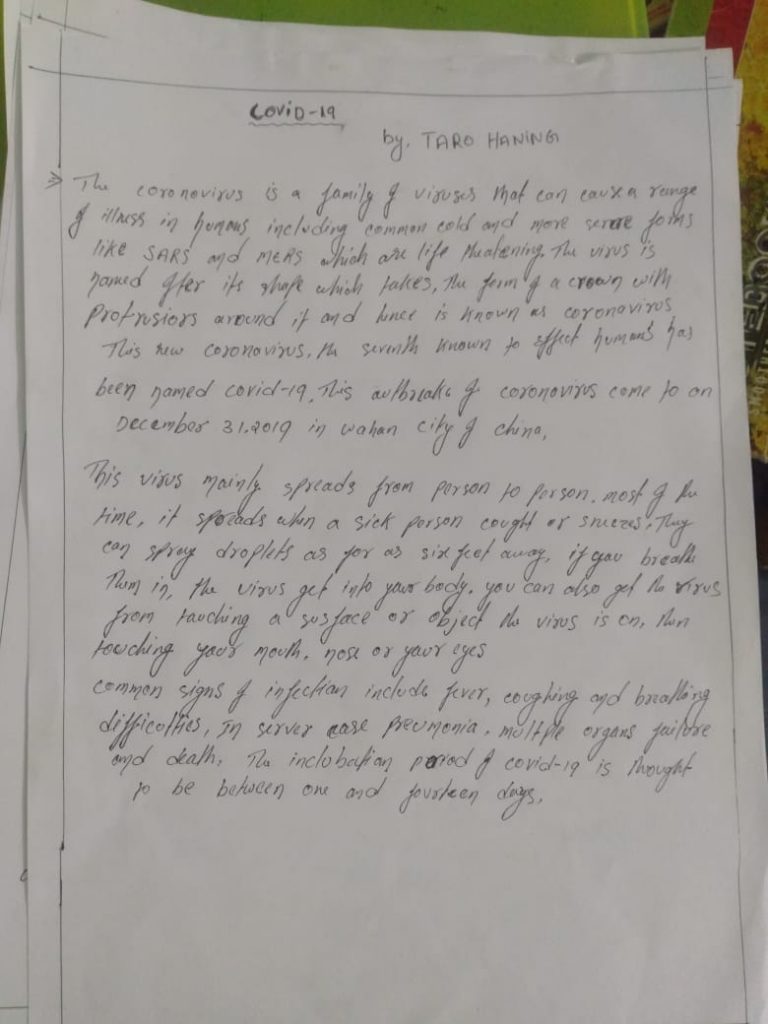 COVID-19
by, TARO HANING
The coronovirus is a family of viruses that can cause a range
of illness in humans including common cold and more severe forms
like SARS and MERS which are life theatening. The virus is
named after its shape which takes, the form of a crown with
Protrusiors around it and hence is known as coronavirus
This new coronovirus, the seventh known to effect humans has
been named covid-19, This outbreake of coronovirus come to on
December 31.2019 in wahan city of china,
This virus mainly spreads from person to person. most of the
time, it spreads when a sick person cought or sneezes. They
can spray droplets as far as six feet away, if you breath
Them in, the virus get into your body. you can also get the virus
from touching a surface or object the virus is on, then
touching your mouth, nose or your eyes
common signs of infection include fever, coughing and breathing
difficolties, In server case Pneumonia, multple organs failure
and death. The inclubation period of covid-19 is thought
to be between one and fourteen days,